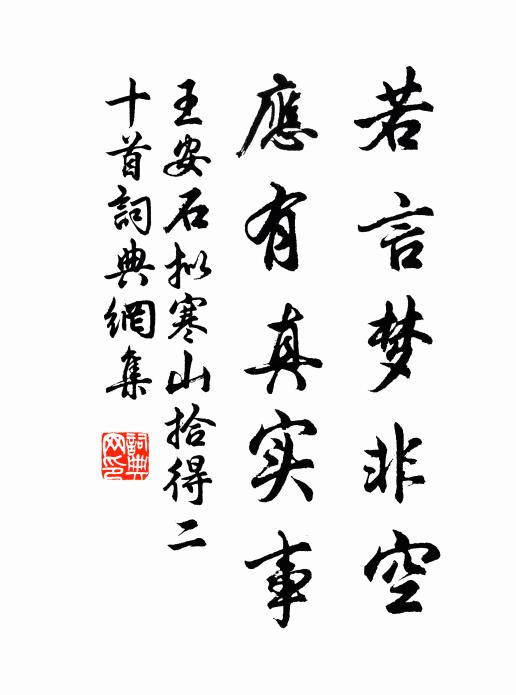 若言梦非空
應有真实事
王安石拟寒山拾得二
十首詞典網集
詞典
网印